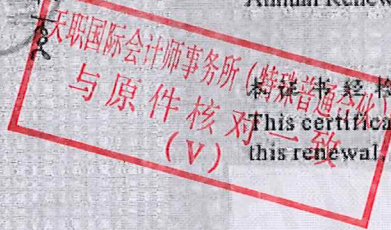 Annual Renewal
天职国际会计师事务所(特殊普通合伙)
与原件核对一致
(V)
本证书经检
This certifica
this renewal.